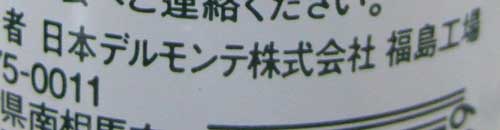 ご連絡ください。
者 日本デルモンテ株式会社 福島工場
75-0011
県南相馬